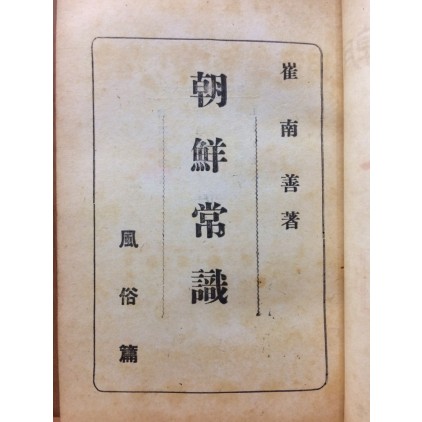 崔南善著
朝鮮常識
風俗篇